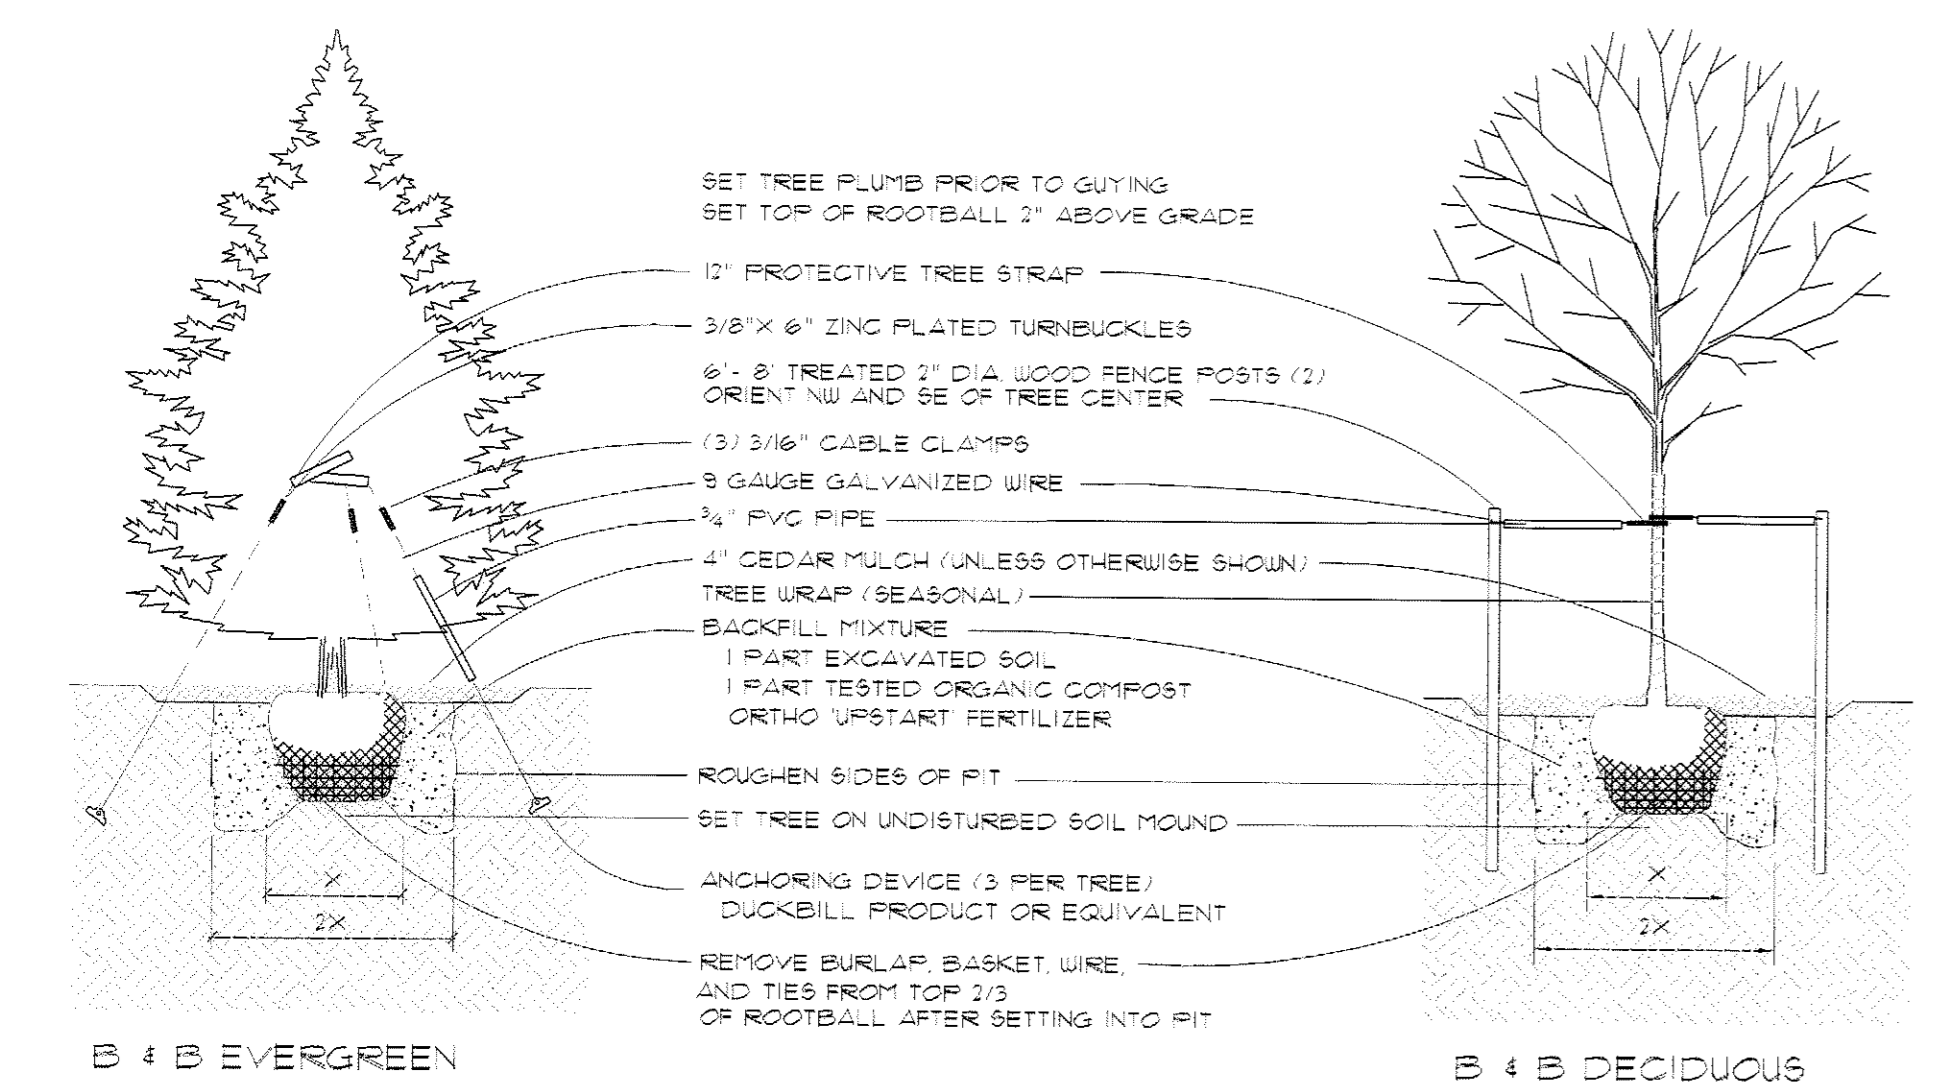 SET TREE PLUMB PRIOR TO GUYING
SET TOP OF ROOTBALL 2" ABOVE GRADE
12" PROTECTIVE TREE STRAP
3/8"X 6" ZINC PLATED TURNBUCKLES
6'- 8' TREATED 2" DIA. WOOD FENCE POSTS (2)
ORIENT NW AND SE OF TREE CENTER
(3) 3/16" CABLE CLAMPS
9 GAUGE GALVANIZED WIRE
3/4" PVC PIPE
4" CEDAR MULCH (UNLESS OTHERWISE SHOWN)
TREE WRAP (SEASONAL)
BACKFILL MIXTURE
1 PART EXCAVATED SOIL
1 PART TESTED ORGANIC COMPOST
ORTHO 'UPSTART' FERTILIZER
ROUGHEN SIDES OF PIT
SET TREE ON UNDISTURBED SOIL MOUND
ANCHORING DEVICE (3 PER TREE)
DUCKBILL PRODUCT OR EQUIVALENT
REMOVE BURLAP, BASKET, WIRE,
AND TIES FROM TOP 2/3
OF ROOTBALL AFTER SETTING INTO PIT
X
2X
X
2X
B & B EVERGREEN
B & B DECIDUOUS